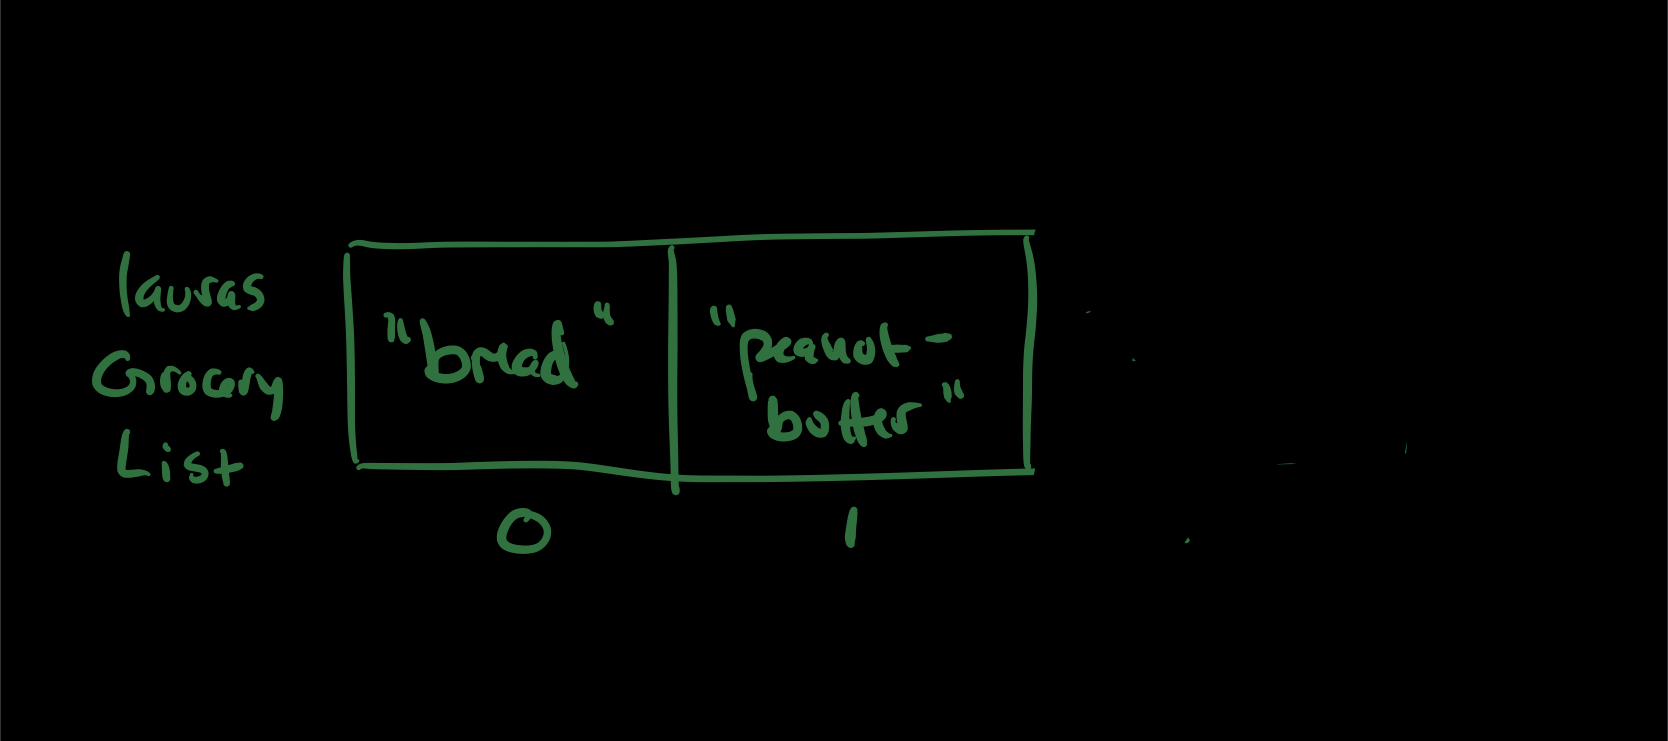 lauras
Grocery
List
"bread"
"peanut-
butter"
0
1